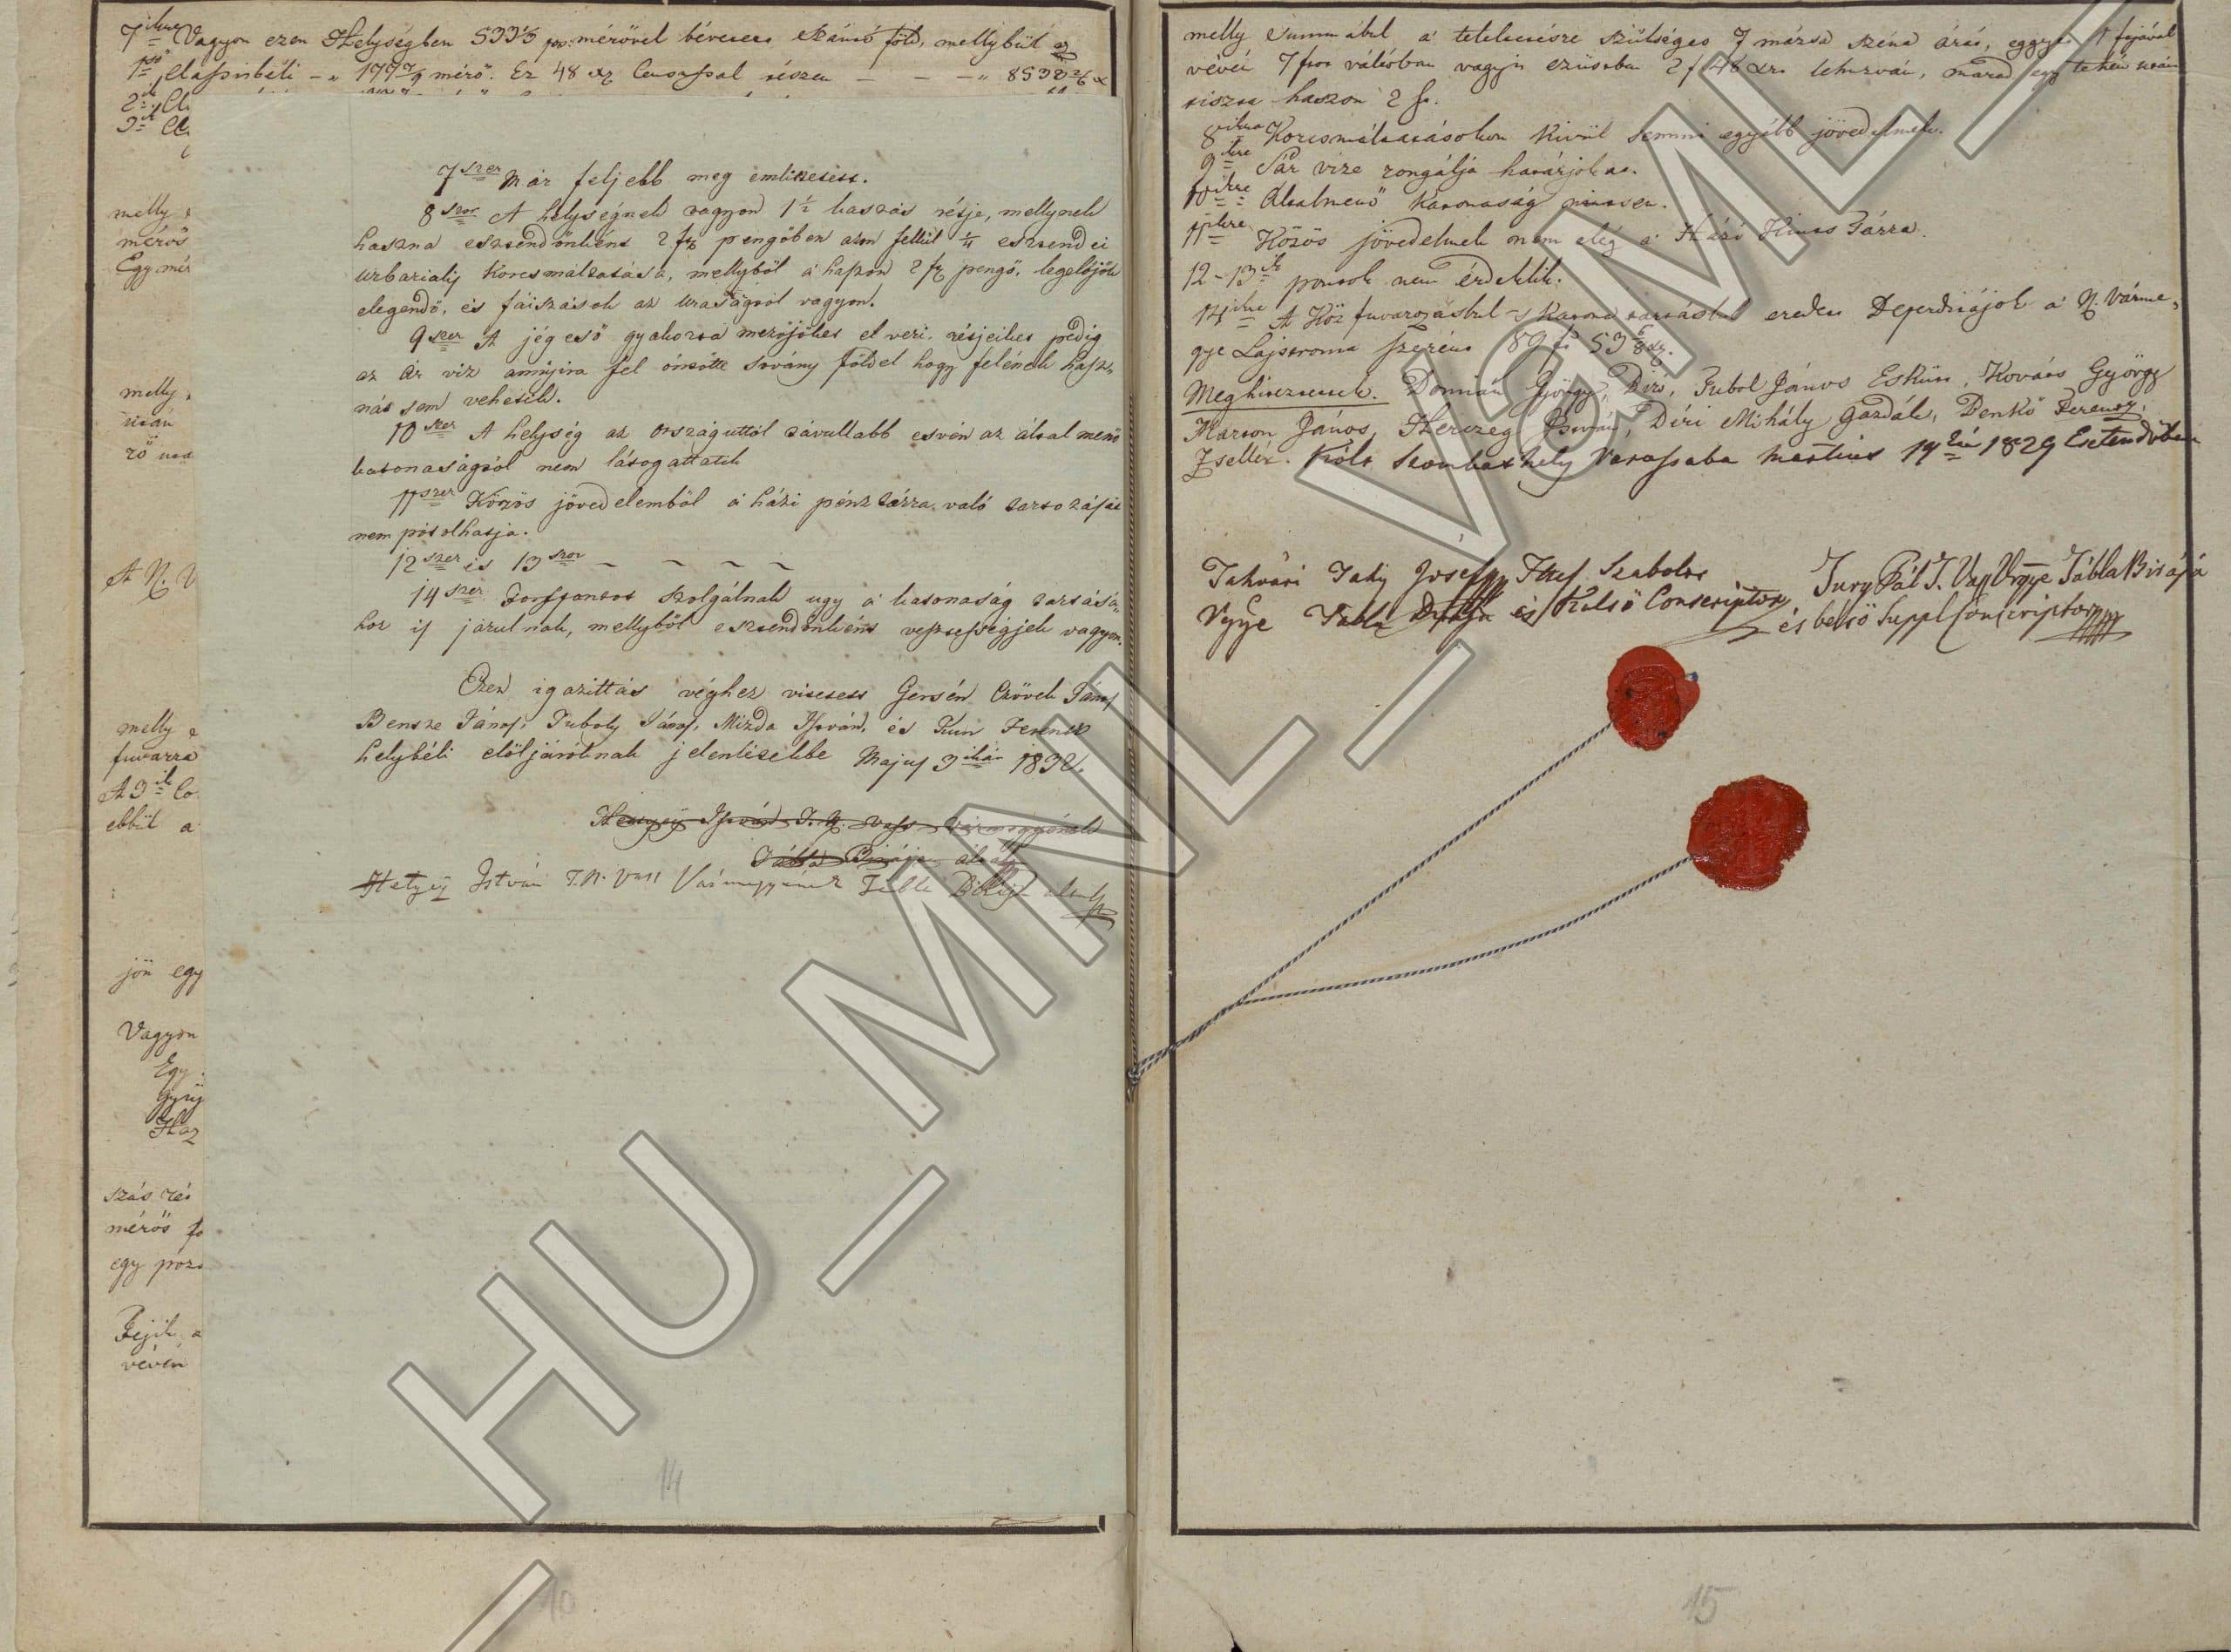 7ikre Vagyon ezen Helységben 533 1/3 po: mérővel bévetett Szántó föld, mellybül az
1ső Classisbéli 177 7/9 mérő. Ez 48 xr Census̃al tészen 8532
2ik Cl
3ik Cl
melly
mérős
Egy mér
melly
után
rő
A N. V
melly
fuvarra
A 3ik Co
ebbül a
jön egy
Vagyon
Egy
Gyüj
Ház
szás rés
mérős fö
egy pozs
Fejik a
vévén
7szer Már feljebb meg emlitetett.
8szor A helységnek vagyon 1 1/2 kaszás rétje, mellynek
haszna esztendőnként 2 fr pengőben azon fellül 1/4 esztendei
urbarialis Korcsmáltatása, mellyből a haszon 2 fr pengő, legelőjök
elegendő, és fáizások az uraságtól vagyon.
9szer A jég eső gyakorta mezőjöket el veri, rétjeiket pedig
az ár viz annyira fel öntötte sovány földel hogy felének hasz-
nát sem vehetik.
10szer A helység az országuttól távullabb esvén az által menő
katonaságtól nem látogattatik
11szer Közös jövedelemből a házi pénztárra való tartozását
nem pótolhatja.
12szer és 13szor - - - -
14szer Forspontot szolgálnak ugy a katonaság tartásá-
hoz is járulnak, mellyből esztendőnként vesztességjek vagyon.
Ezen igazittás véghez vitetett Gersén Czövek János
Bensze János, Tuboly János, Mizda István, és Kun Ferencz
helybéli elöljáróknak jelenlétekbe Majus 3ikán 1832.
Hettyey István T. N. Vass Vármegyének
Tábla Birája által
Hettyey István T. N. Vass Vármegyének Tábla Birája által
14
10
melly Summábul a' teleltetésre szükséges 7 mázsa széna árát, eggyet 1 fajával
vévén 7 fror váltóban vagyis ezüstben 2 f 48 xrt lehuzván, marad egy tehén után
tiszta haszon 2 fr.
8ikra Korcsmáltatásokon kivül semmi egyébb jövedelmek.
9ikre Sár vize rongálja határjokat.
10ikre Általmenő Katonaság nintsen.
11ikre Közös jövedelmek nem elég a' Házi Kints Tárra.
12-13ik pontok nem érdeklik.
14ikre A Köz fuvarozásbul 's Katona tartásbul eredett Deperditájok a' N. Várme-
gye Lajstroma szerént 89 fr 53 6/8 xr.
Meghitezettek. Domián György Biró, Tubol János Esküt, Kováts György
Marton János, Herczeg István, Déri Mihály Gazdák, Denkó Ferencz
Zsellér. Költ Szombathely Várossába Martius 14kén 1829 Esztendőben
Tahvári Tahy József Ttes Szabolcs
Vgye Tabla Birája és Külső Conscriptor
Jury Pál T. Vas Vrgye Tábla Birája
és belső Suppl Conscriptor
15
HU_MNL_VaML_I